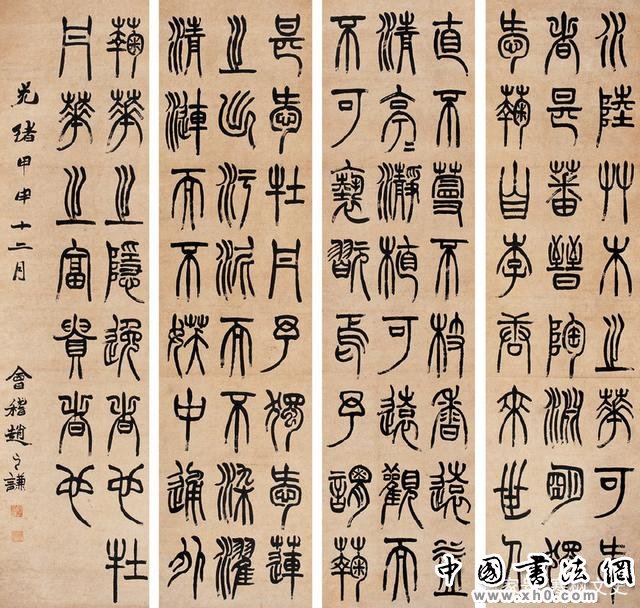 水陸艸木之華可愛
者甚蕃晉陶淵朙獨
愛蘜自李唐來世人
甚愛牡丹予獨愛蓮
之出汙泥而不染濯
清漣而不妖中通外
直不蔓不枝香遠益
清亭二瀞植可遠觀而
不可褻翫焉予謂蘜
蘜華之隱逸者也牡
丹華之富貴者也
光緒甲申十二月
會稽趙之謙
中國書法網
www.xh0.com